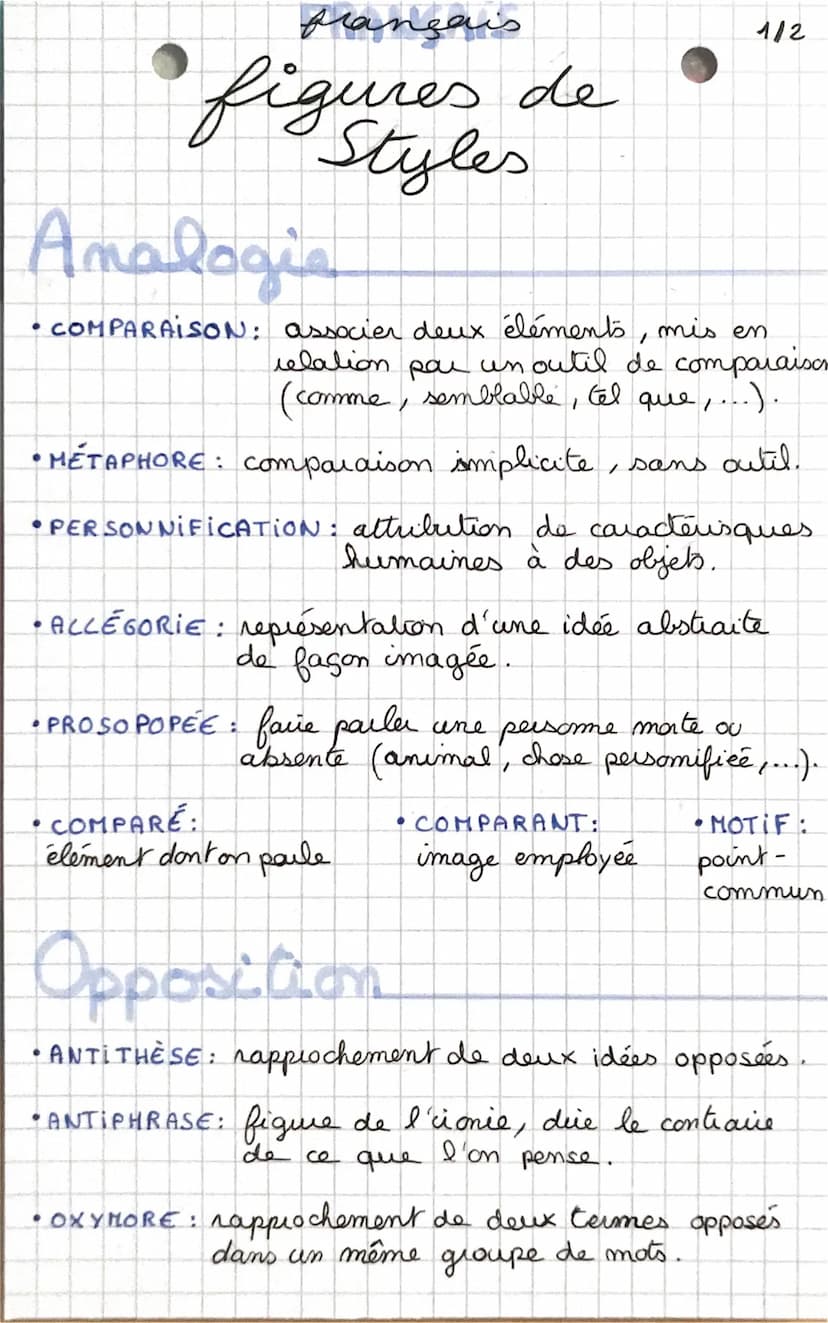 français
1/2
figures de
Styles
Analogie
• COMPARAISON : associer deux éléments, mis en
relation par un outil de comparaison
(comme, semblable, tel que, ...).
• MÉTAPHORE : comparaison implicite, sans outil.
• PERSONNIFICATION : attribution de caractérisques
humaines à des objets.
• ALLÉGORIE : représentation d'une idée abstraite
de façon imagée.
• PROSOPOPÉE : faire parler une personne morte ou
absente (animal, chose personnifiée, ...).
• COMPARÉ : • COMPARANT : • MOTIF :
élément dont on parle image employée point-
commun
Opposition
• ANTITHÈSE : rapprochement de deux idées opposées.
• ANTIPHRASE : figure de l'ironie, dire le contraire
de ce que l'on pense.
• OXYMORE : rapprochement de deux termes opposés
dans un même groupe de mots.